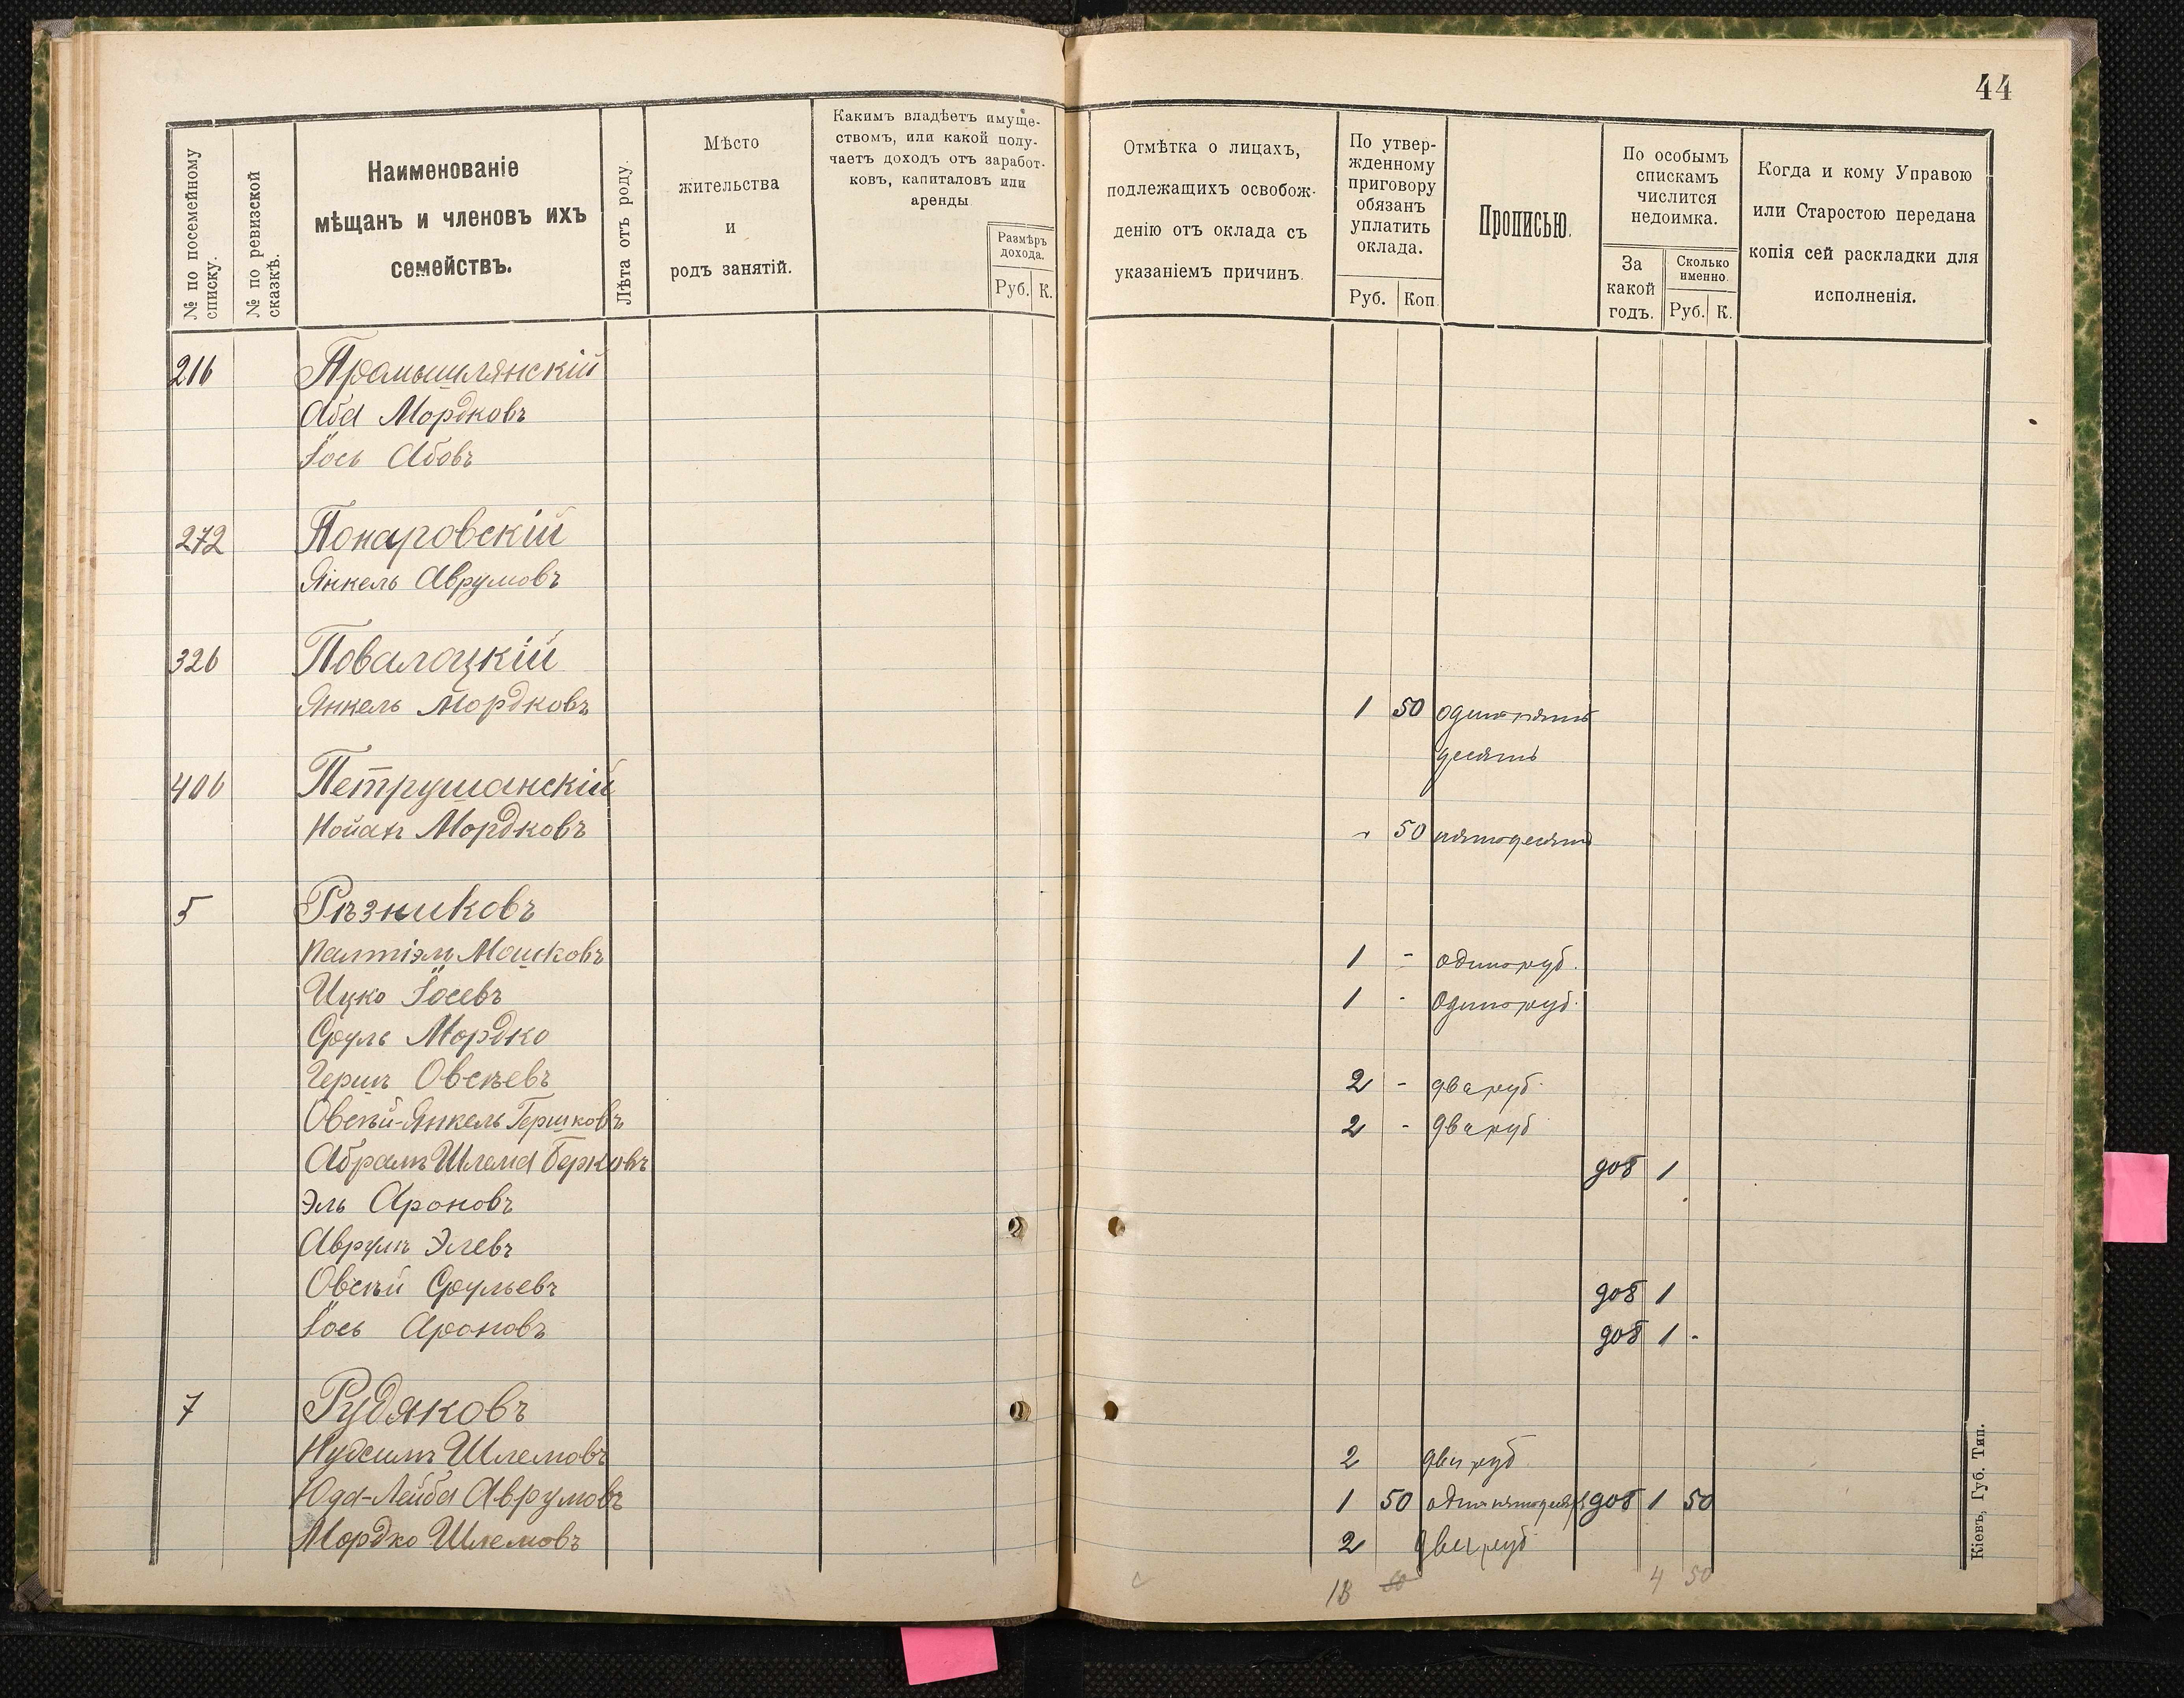 44
№ по посемейному списку.
№ по ревизской сказкѣ.
Наименованіе
мѣщанъ и членовъ ихъ
семействъ.
Лѣта отъ роду.
Мѣсто
жительства
и
родъ занятій.
Какимъ владѣетъ имуще-
ствомъ, или какой полу-
чаетъ доходъ отъ заработ-
ковъ, капиталовъ или
аренды
Размѣръ
дохода.
Руб. К.
Отмѣтка о лицахъ,
подлежащихъ освобож-
денію отъ оклада съ
указаніемъ причинъ.
По утвер-
жденному
приговору
обязанъ
уплатить
оклада.
Руб. Коп.
Прописью.
По особымъ
спискамъ
числится
недоимка.
За
какой
годъ.
Сколько
именно.
Руб. К.
Когда и кому Управою
или Старостою передана
копія сей раскладки для
исполненія.
216 Промышлянскій
Аба Мордковъ
Іось Абовъ
272 Понаровскій
Янкель Аврумовъ
326 Поволоцкій
Янкель Мордковъ 1 50 одинъ пять
десять
406 Петрушанскій
Мордковъ 50 пятьдесятъ
5 Рѣзниковъ
Палтіэль Мошковъ 1 - одинъ руб.
Ицко Іосевъ 1 - одинъ руб.
Сруль Мордко
Гершъ Овсѣевъ 2 - два руб.
Овсѣй-Янкель Гершковъ 2 - два руб
Абрамъ Шлема Берковъ 908 1
Эль Ароновъ
Аврумъ Элевъ
Овсѣй Срульевъ 908 1
Іось Ароновъ 908 1 -
7 Рудяковъ
Нухимъ Шлемовъ 2 два руб
Юда-Лейба Аврумовъ 1 50 одинъ пятьдесят 908 1 50
Мордко Шлемовъ 2 два руб
13 50 4 50
Кіевъ, Губ. Тип.